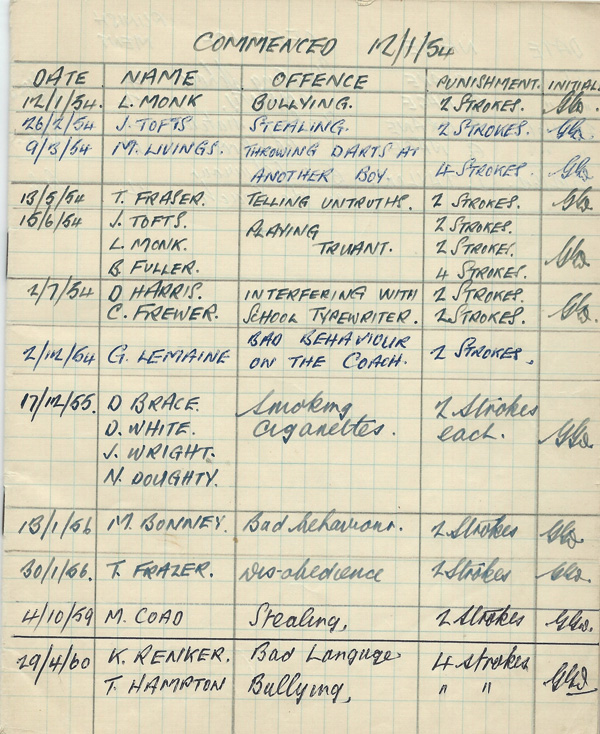 COMMENCED 12/1/54
DATE NAME OFFENCE PUNISHMENT. INITIAL
12/1/54. L. MONK BULLYING. 2 STROKES.
26/2/54 J. TOFTS STEALING. 2 STROKES.
9/3/54 M. LIVINGS. THROWING DARTS AT
ANOTHER BOY. 4 STROKES.
13/5/54 T. FRASER. TELLING UNTRUTHS. 2 STROKES.
15/6/54 J. TOFTS PLAYING 2 STROKES.
L. MONK. TRUANT. 2 STROKES.
B. FULLER. 4 STROKES.
2/7/54 D HARRIS. INTERFERING WITH 2 STROKES.
C. FREWER. SCHOOL TYPEWRITER. 2 STROKES.
2/12/54 G. LEMAINE BAD BEHAVIOUR
ON THE COACH. 2 STROKES.
17/12/55. D BRACE. Smoking 2 Strokes
D. WHITE. Cigarettes. each.
J. WRIGHT.
N. DOUGHTY.
13/1/56 M. BONNEY. Bad behaviour. 2 Strokes
30/1/56. T. FRAZER. Dis-obedience 2 Strokes
4/10/59 M. COAD Stealing, 2 Strokes
29/4/60 K. RENKER. Bad Languge 4 strokes
T. HAMPTON Bullying, " "